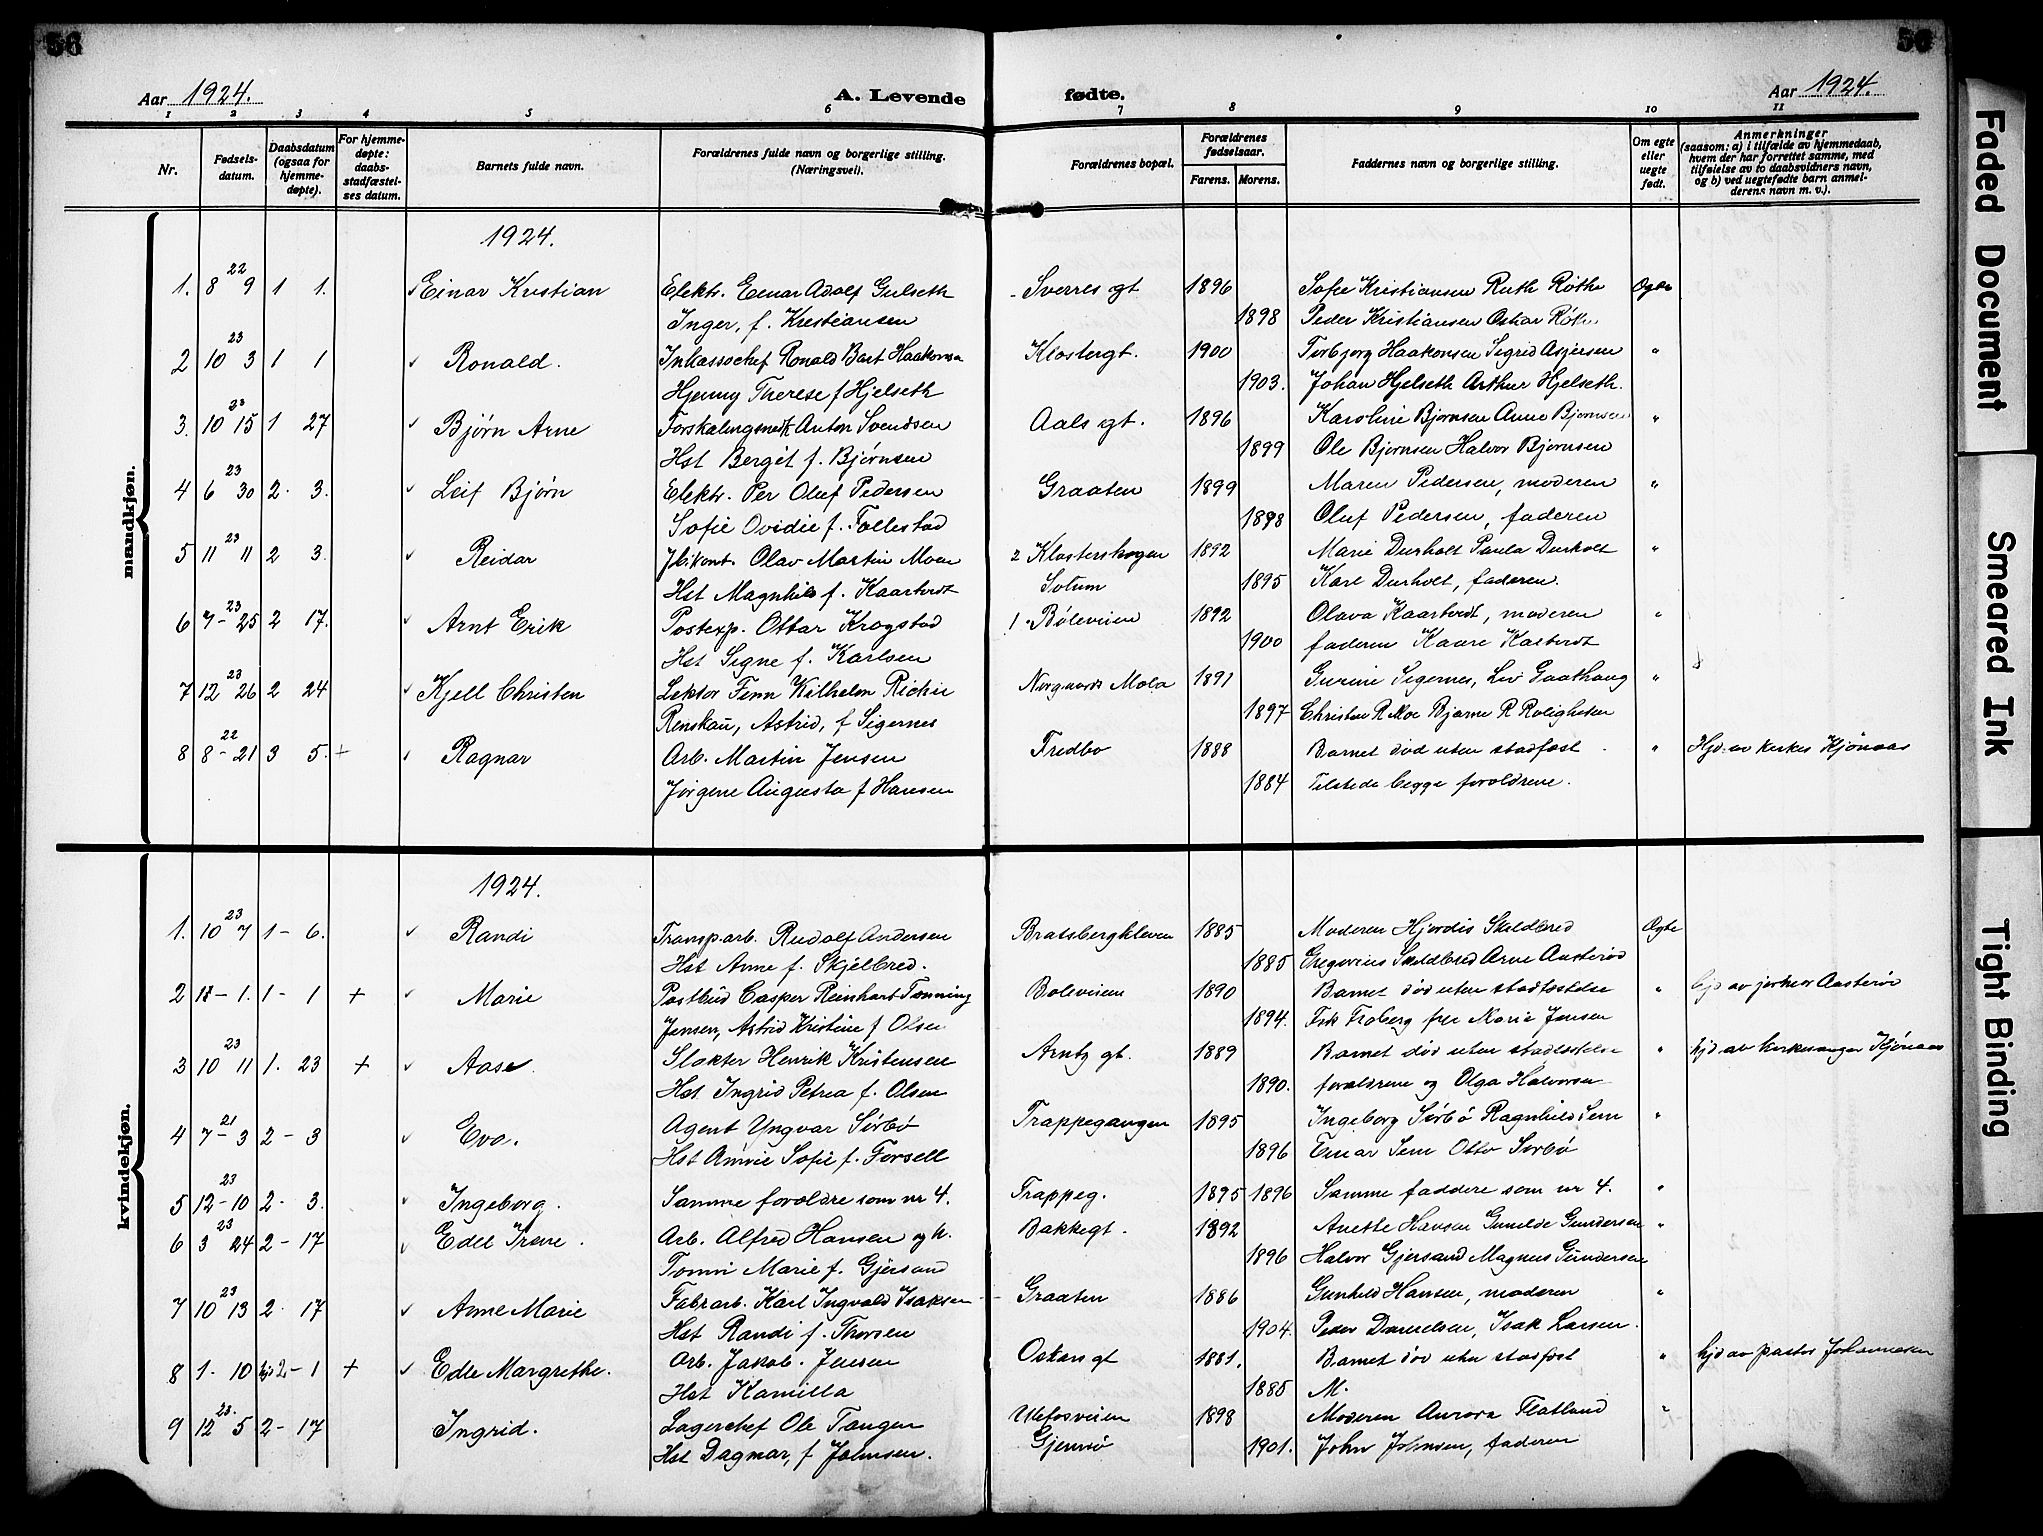 56
Aar 1924.
A. Levende
1 2 3 4 5 6
Nr.
Fødsels-
datum.
Daabsdatum
(ogsaa for
hjemme-
døpte).
For hjemme-
døpte:
daabs-
stadfæstel-
ses datum.
Barnets fulde navn.
Forældrenes fulde navn og borgerlige stilling.
(Næringsvei).
mandkjøn.
1924.
1. 8 22 9 1 1. Einar Kristian Elektr. Einar Adolf Gulseth
Inger, f. Kristiansen
2 10 23 3 1 1 Ronald. Inkassochef Ronald Bast Haakonsen
Hjenny Therese f Hjelseth
3. 10 23 15 1 27 Bjørn Arne Anton Svendsen
Hst Bergit f. Bjørnsen
4 6 23 30 2. 3. Leif Bjørn Elektr. Per Oluf Pedersen
Sofie Ovidie f. Follestad
5 11 23 11 2 3. Reidar Olav Martin Moen
Hst Magnhild f. Kaarbødt
6 7- 23 25 2 17. Arnt Erik Postexp. Ottar Krogstad
Hst Signe f. Karlsen
7 12 23 26 2 24 Kjell Christen Lektor Finn Wilhelm Richie
Renskau, Astrid, f Sigernes
8 8- 22 21 3 5. + Ragnar Arb. Martin Jensen
Jørgine Augusta f Hansen
kvindekjøn.
1924.
1. 10 23 7 1- 6. Randi Transp.arb. Rudolf Andersen
Hst Anne f. Skjelbred.
2 - 1. 1- 1 + Marie Postbud Casper Reinhart Tønning
Jensen, Astrid Kristine f Olsen
3 10 23 11 1. 23 + Aase Slakter Henrik Kristensen
Hst Ingrid Petrea f. Olsen
4 7- 21 3 2- 3 Eva. Agent Yngvar Sørbø
Hst Annie Sofie f. Forsell
5 12- 23 10 2- 3. Ingeborg. Samme forældre som nr 4.
6 3 23 24 2- 17 Edel Irene. Arb. Alfred Hansen og h.
Tomine Marie f. Gjersand
7 10 23 13 2. 17 Anne Marie Fabrarb. Karl Ingvald Isaksen
Hst Randi f. Thorsen
8 1. 10 hjd 2- 1 + Edle Margrethe. Arb. Jakob. Jensen
Hst Kamilla
9 12 23. 5 2- 17 Ingrid. Lagerchef Ole Tangen
Hst Dagmar, f Johnsen.
56
fødte.
Aar 1924.
7 8 9 10 11
Forældrenes bopæl.
Forældrenes
fødselsaar.
Farens. Morens.
Faddernes navn og borgerlige stilling.
Om egte
eller
uegte
født.
Anmerkninger
(saasom: a) i tilfælde av hjemmedaab,
hvem der har forrettet samme, med
tilføielse av to daabsvidners navn,
og b) ved uegtefødte barn anmel-
derens navn m. v.).
Sverres gt 1896 Sofie Kristiansen Ruth Røthe
1898 Peder Kristiansen Oskar
Klostergt. 1900 Torbjørg Haakonsen Sigrid Asjersen "
1903. Johan Hjelseth Arthur Hjelseth.
Aals gt. 1896 Karoline Bjørnsen Anne Bjørnsen "
1899 Ole Bjørnsen Halvor Bjørnsen
Graaten 1899 Maren Pedersen, moderen "
1898 Oluf Pedersen, faderen
2 Klosterskogen 1892 Marie Durholt Paula Durholt "
Solum 1895 Karl Durholt, faderen.
1. Bøleveien 1892 Olava Kaarbødt, moderen "
1900 faderen Kaare
Norgaards Mola 1891 Gurine Sigernes, Liv Gaathaug "
1897 Christen R Moe Bjarne R Roligheten
Fredbo 1888 Barnet død uten stadfæst. " Hjd. av kirkes Kjønaas
1884 Tilstede begge forældrene.
Bratsbergkleven 1885 Moderen Hjørdis Skeldbred Egte
1885 Gregorius Skeldbred Arne Austerød
Boleveien 1890 Barnet død uten stadfæstelse " hjd av jordmor Aasterød
1894. Frk Froberg fru Marie Jensen
Arntz gt. 1889 Barnet død uten stadfæstelse " hjd av kirkesanger Kjønaas
1890. forældrene og Olga Halvorsen
Trappegangen 1895 Ingeborg Sørbø Ragnhild Sem "
1896 Einar Sem Otto Sørbø
Trappeg. 1895 1896 Samme faddere som nr 4. "
Bakkegt. 1892 Anette Hansen Gunilde Gundersen "
1896 Halvor Gjersand Magnus Gundersen
Graaten 1886 Gunhild Hansen, moderen "
1904. Peder Danielsen, Isak Larsen.
Oskars gt 1881. Barnet død uten stadfæst " hjd av pastor Johannesen
1885 M.
Ulefosveien 1898 Moderen Aurora Flatland "
Gjemsø 1901. John Johnsen, faderen
Faded Document
Smeared Ink
Tight Binding